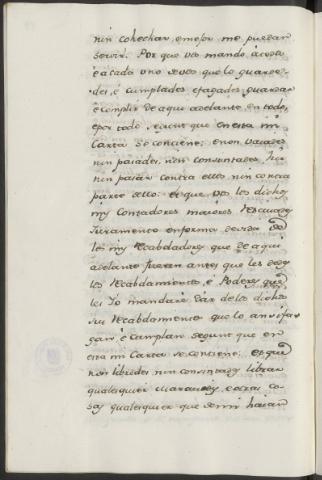 nin cohechar, e mejor me puedan
servir. Por que vos mando à todos
e à cada uno de vos que lo guarde-
des, è cumplades e fagades guardar
e complir de aqui adelante, en todo,
e por todo segunt que en esta mi
Carta se contiene; e non vaiades
nin pasedes, nin consintades hir
nin pasar contra ello, nin contra
parte dello: e que vos los dichos
mis Contadores maiores rescivades
Juramento en forma devida de
los mis Recabdadores que de aqui
adelante fueran antes que les dedes
los Recabdamientos, e Poderes que
les Yo mandare dar de los dichos
sus Recabdamientos que lo ansi fa-
gan, è cumplan segunt que en
esta mi Carta se contiene; e que
non libredes nin consintades librar
qualesquier maravedis, e otras co-
sas qualesquier que de mi haian